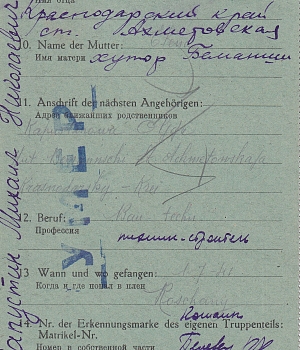 Имя отца
Краснодарский край
ст. Ахметовская
10. Name der Mutter:
Имя матери хутор Беманши
11. Anschrift der nächsten Angehörigen:
Адрес ближайших родственников
Krasnodarsky - Krei
12. Beruf: Bau techn
Профессия
техник-строитель
13 Wann und wo gefangen: 8.7.41
Когда и где попал в плен
Roschany
14. Nr. der Erkennungsmarke des eigenen Truppenteils:
Matrikel-Nr.
Номер в собственной части
Капустин Михаил Николаевич
УМЕР